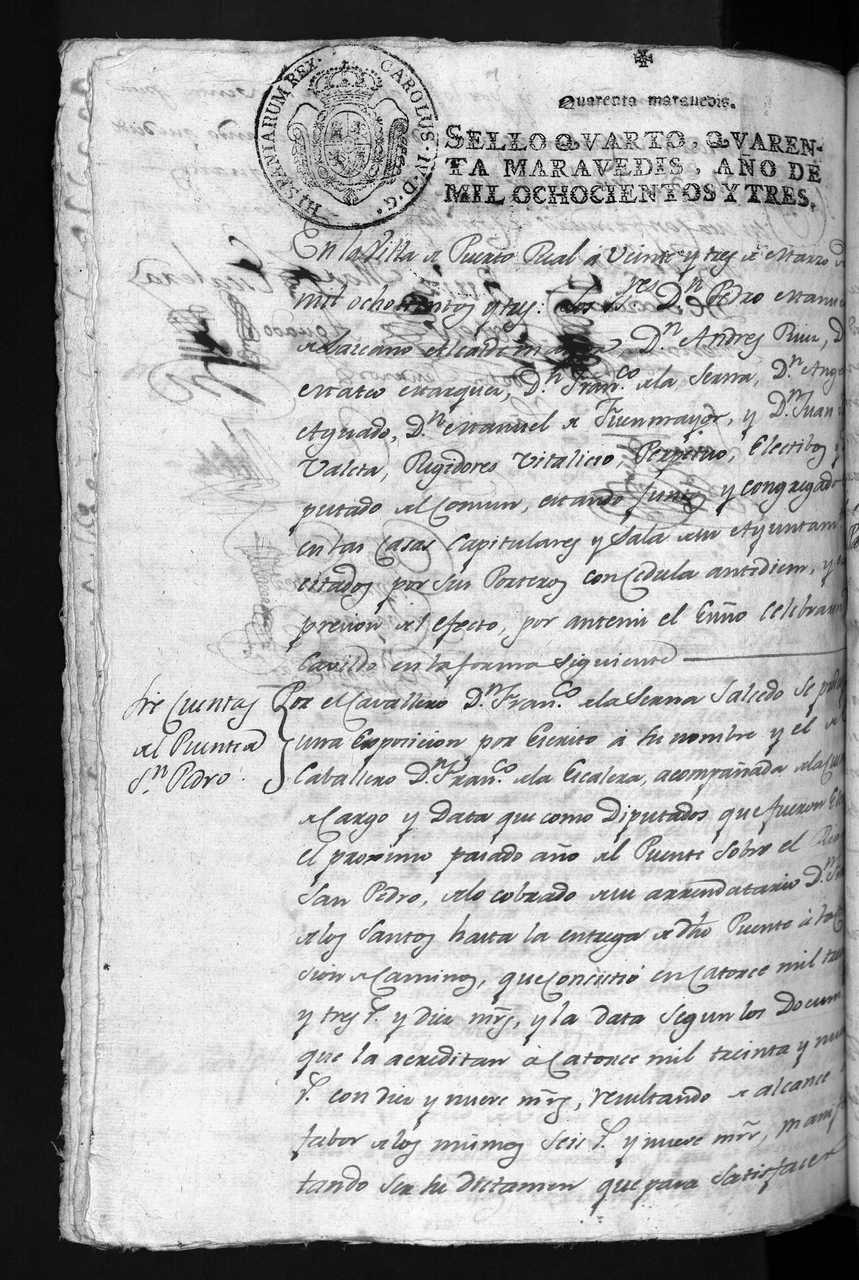 HISPANIARUM REX. CAROLUS. IV. D. G.
Quarenta maravedis.
SELLO QVARTO, QVAREN-
TA MARAVEDIS, AÑO DE
MIL OCHOCIENTOS Y TRES.
En la Villa de Puerto Real á Veinte y tres de Marzo
mil ochocientos y tres: los S.res D.n Pedro Manu
Alcalde D.n Andres Ruiz,
Mateo Marquez, D.n Fran.co de la Serna, D.n Ang
Aguado, D.n Manuel de Fuenmayor, y D.n Juan
Valeta, Regidores Vitalicio Perpetuo, Electibos y
putado del Comun, estando Juntos y congregado
en las Casas Capitulares y Sala de su Ayuntam
citados por sus Porteros con Cedula antediem, y
presion del efecto, por antemi el Esño Celebraron
Cavildo en la forma siguiente
Sre Cuentas
del Puente de
S.n Pedro.
Por el Cavallero D.n Fran.co de la Serna Salcedo se
una Exposicion por Escrito á su nombre y el de
Caballero D.n Fran.co de la Escalera, acompañada de la
de Cargo y Data que como Diputados que fueron
el proximo pasado año del Puente sobre el Rio
San Pedro, de lo cobrado de su arrendatario D.n
de los Santos hasta la entrega de dho Puente á la
sion de Caminos, que Consistió en Catorce mil
y tres r.s y diez mrs, y la data segun los Docum
que la acreditan á Catorce mil treinta y nu
r.s con diez y nueve mrs, resultando de alcance
fabor de los mismos seis r.s y nueve mrs, manif
tando ser su dictamen que para satisfacer